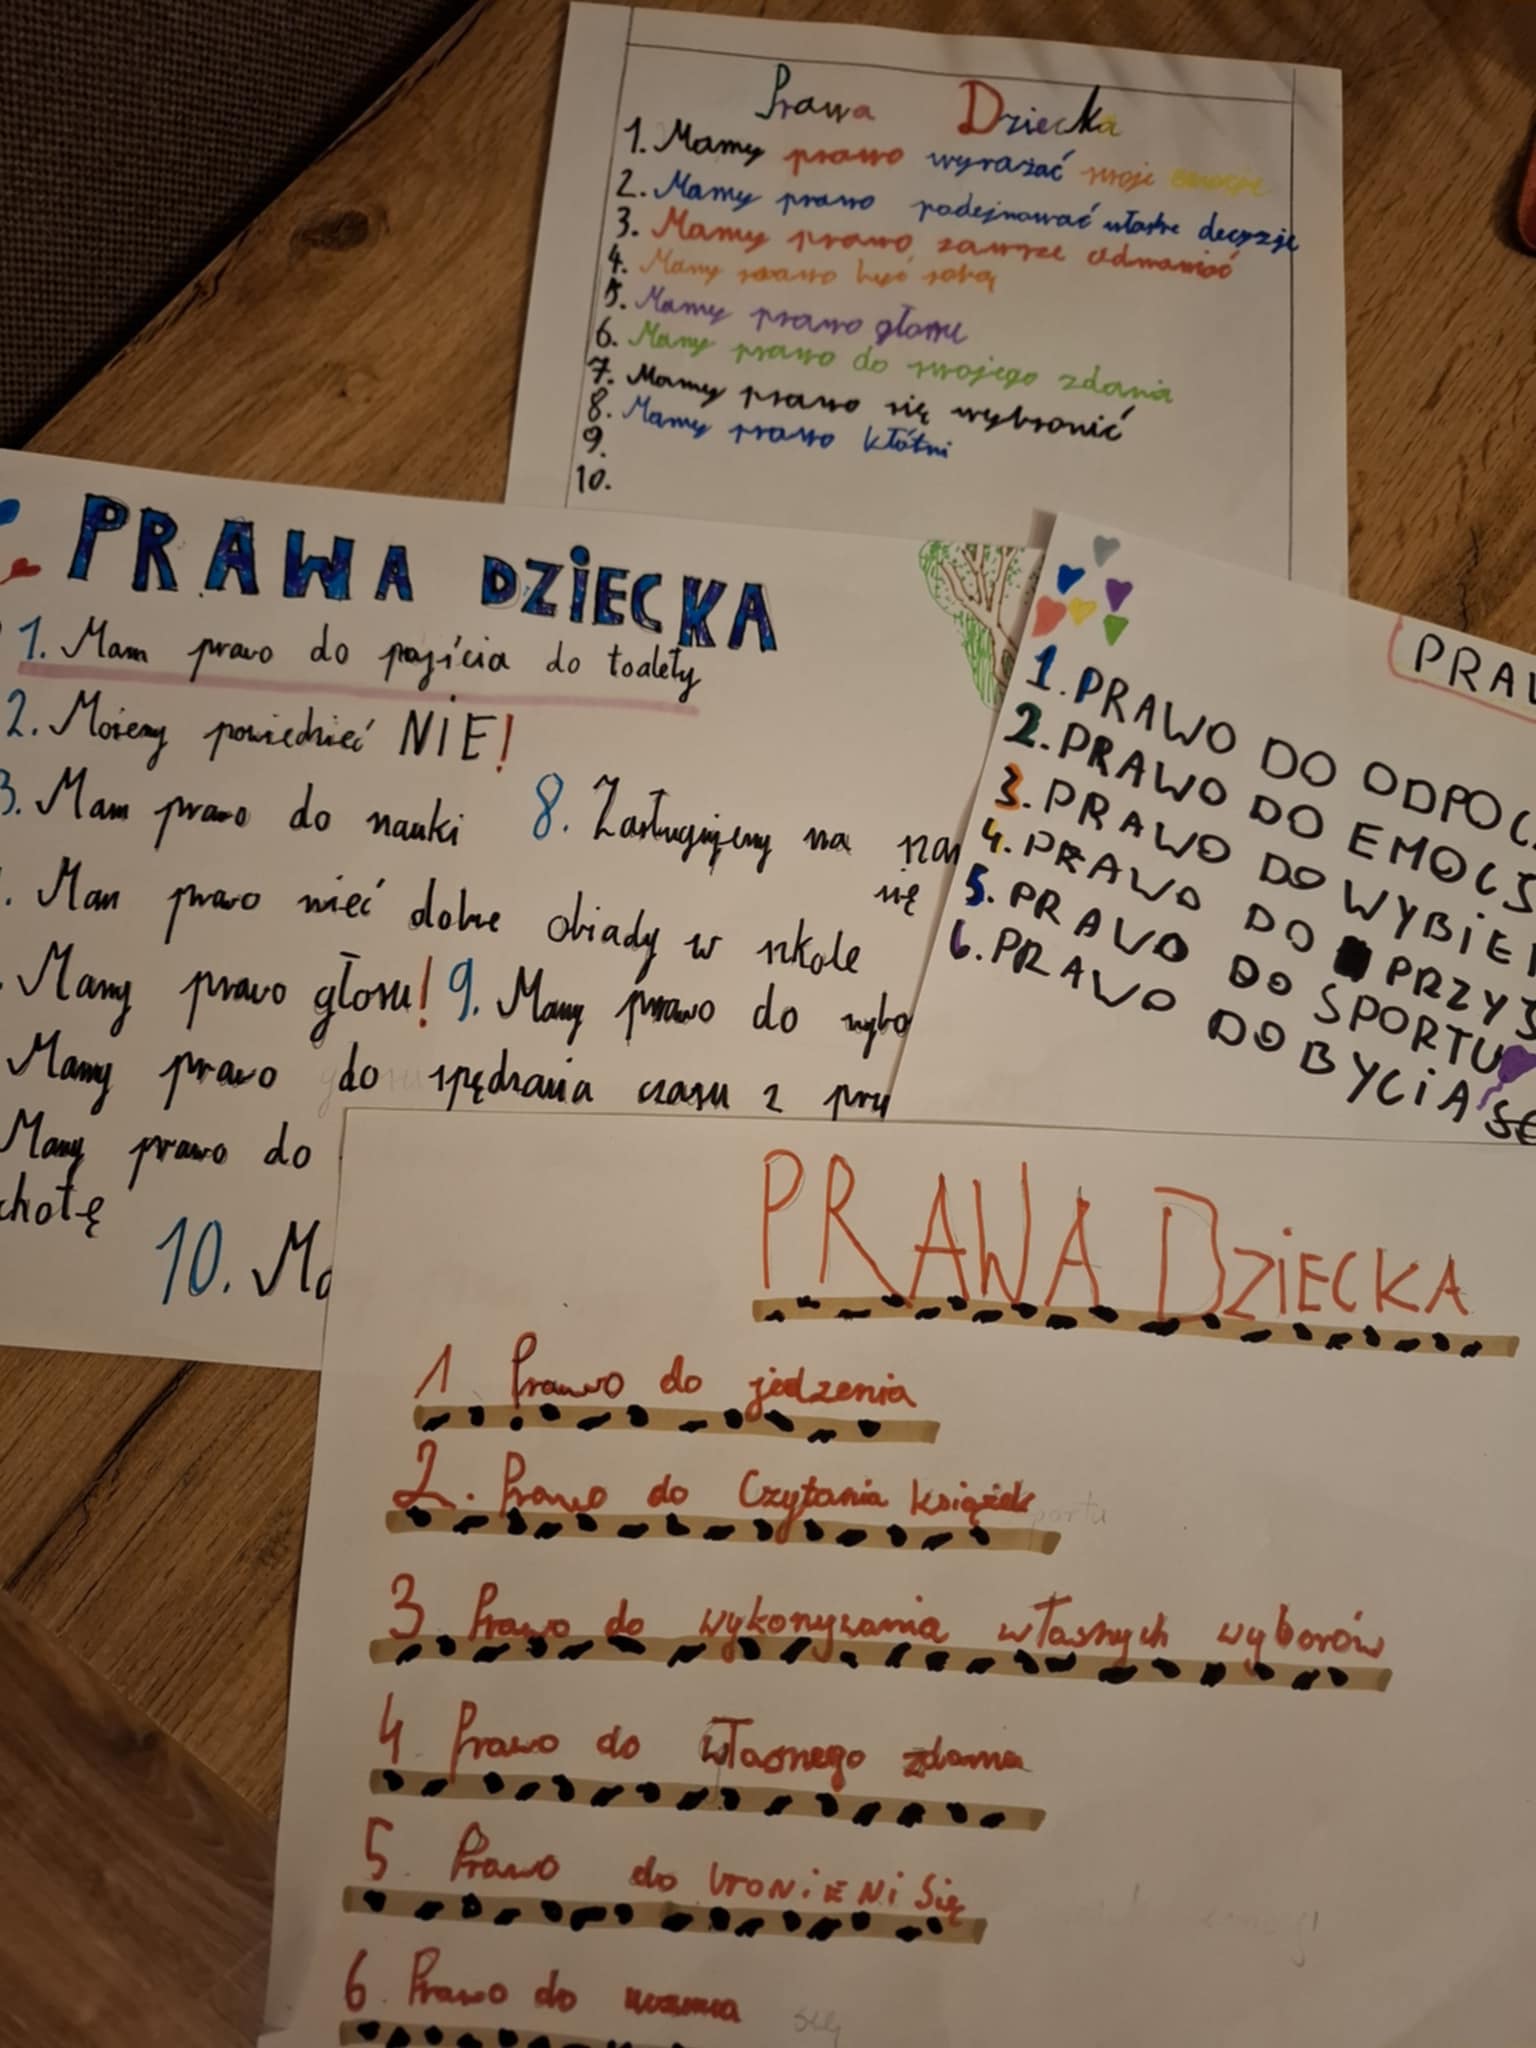 Prawa Dziecka
1. Mamy prawo wyrażać swoje emocje
2. Mamy prawo podejmować własne decyzje
3. Mamy prawo, zawsze odmawiać
4. Mamy prawo być sobą
5. Mamy prawo głosu
6. Mamy prawo do swojego zdania
7. Mamy prawo się wybronić
8. Mamy prawo kłótni
9.
10.
PRAWA DZIECKA
1. Mam prawo do pójścia do toalety
2. Możemy powiedzieć NIE!
3. Mam prawo do nauki
8. Zasługujemy na
się
Mam prawo mieć dobre obiady w szkole
Mamy prawo głosu!
9. Mamy prawo do wybo
Mamy prawo do spędzania czasu z prz
Mamy prawo do
chotę
10. Ma
PRAW
1. PRAWO DO ODPOC
2. PRAWO DO EMOCJ
3. PRAWO DO WYBIER
4. PRAWO DO PRZYJ
5. PRAWO DO SPORTU
6. PRAWO DO BYCIA SO
PRAWA DZIECKA
1 Prawo do jedzenia
2. Prawo do Czytania książek
3 Prawo do wykonywania własnych wyborów
4 Prawo do własnego zdania
5 Prawo do bronieni się
6. Prawo do uczenia się